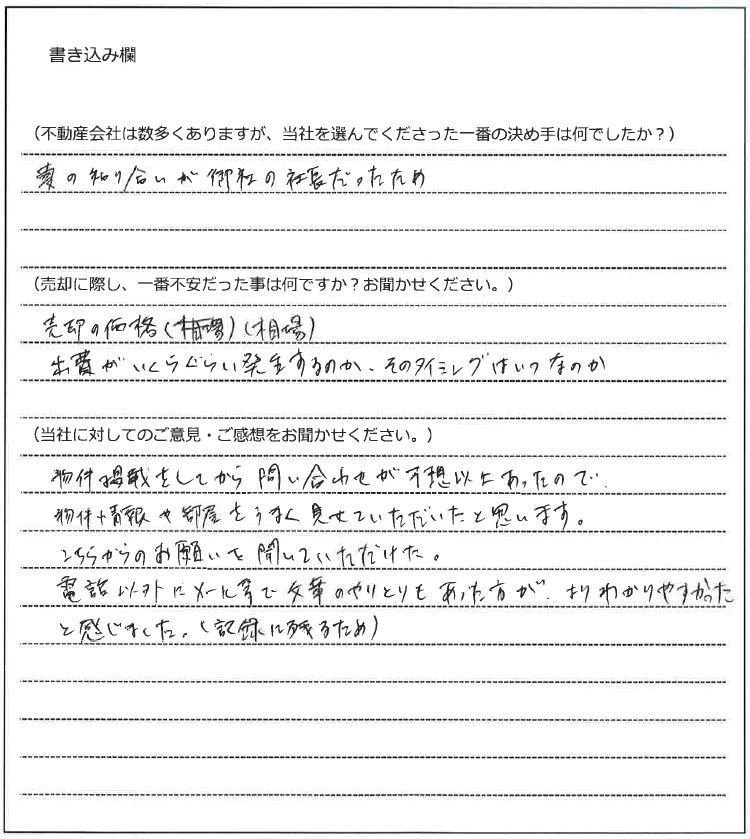 書き込み欄
（不動産会社は数多くありますが、当社を選んでくださった一番の決め手は何でしたか？）
妻の知り合いが御社の社長だったため
（売却に際し、一番不安だった事は何ですか？お聞かせください。）
売却の価格（相場）（相場）
出費がいくらぐらい発生するのか、そのタイミングはいつなのか
（当社に対してのご意見・ご感想をお聞かせください。）
物件掲載をしてから問い合わせが予想以上あったので、
物件情報や部屋をうまく見せていただいたと思います。
こちらからのお願いを聞いていただけた。
電話以外にメール等で文章のやりとりもあった方が、よりわかりやすかった
と感じました。（記録に残るため）